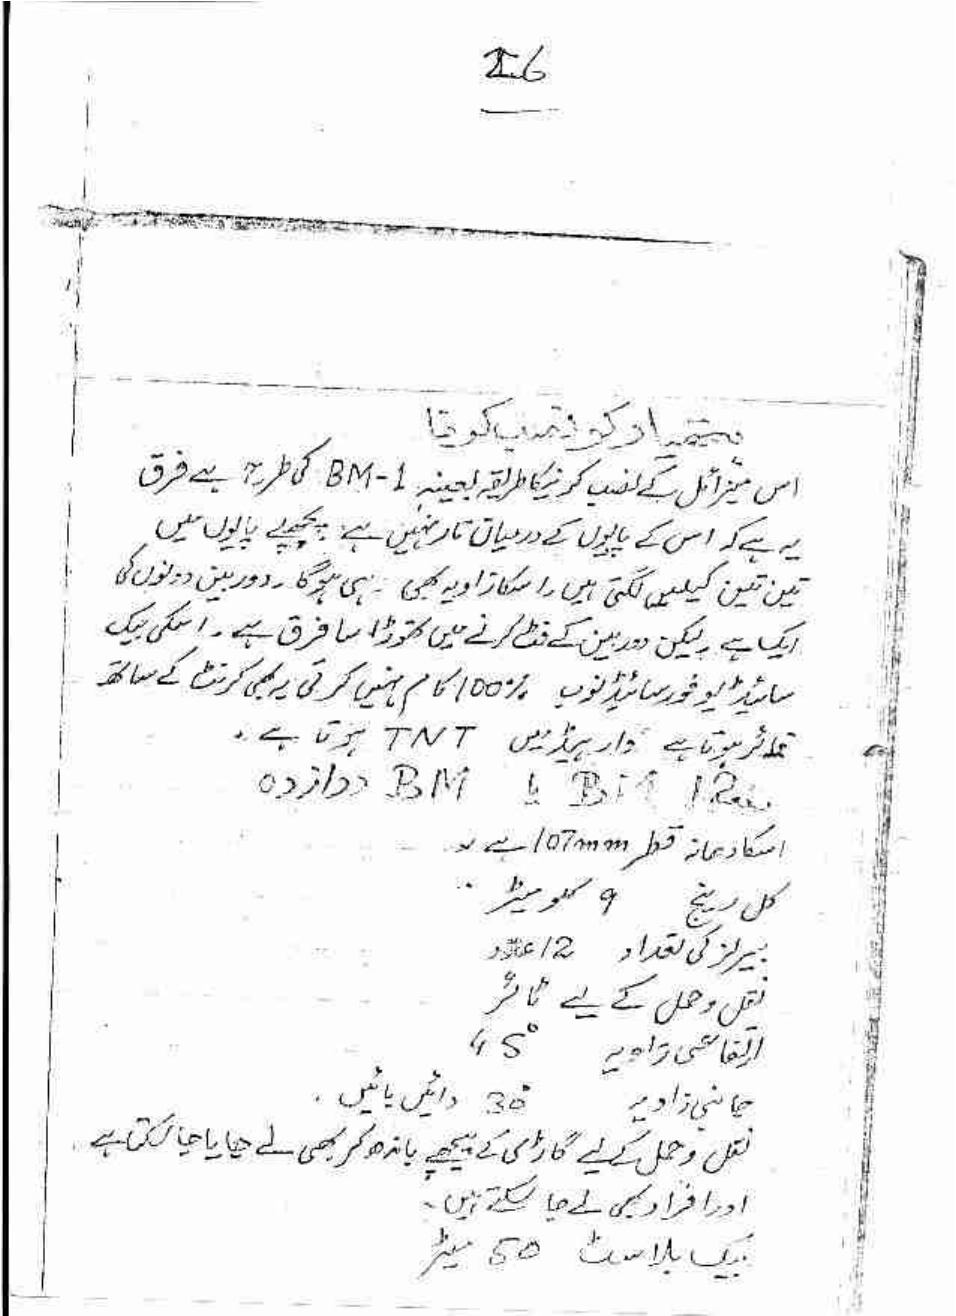 I6
ہتھیار کو نصب کرنا
اس میزائل کے نصب کرنیکا طریقہ بعینہ BM-1 کی طرح ہے فرق
یہ ہے کہ اس کے پایوں کے درمیان تار نہیں ہے۔ پچھلے پایوں میں
تین تین کیلیں لگتی ہیں۔ اسکا زاویہ بھی ہی ہوگا۔ دوربین دونوں کی
ایک ہے۔ لیکن دوربین کے فٹ کرنے میں تھوڑا سا فرق ہے۔ اسکی بیک
سائیڈ 100% کام نہیں کرتی یہ بھی کرنٹ کے ساتھ
فائر ہوتا ہے وار ہیڈ میں TNT ہوتا ہے۔
BM 12 یا BM دوازدہ
اسکا دھانہ قطر 107mm ہے۔
کل رینج 9 کلومیٹر۔
بیرلز کی تعداد 12 عدد
نقل وحمل کے لیے ٹائر
ارتفاعی زاویہ 45°
جانبی زاویہ 30° دائیں بائیں۔
نقل وحمل کے لیے گاڑی کے پیچھے باندھ کر بھی لے جایا جا سکتا ہے
اور افراد بھی لے جا سکتے ہیں۔
بیک بلاسٹ 50 میٹر